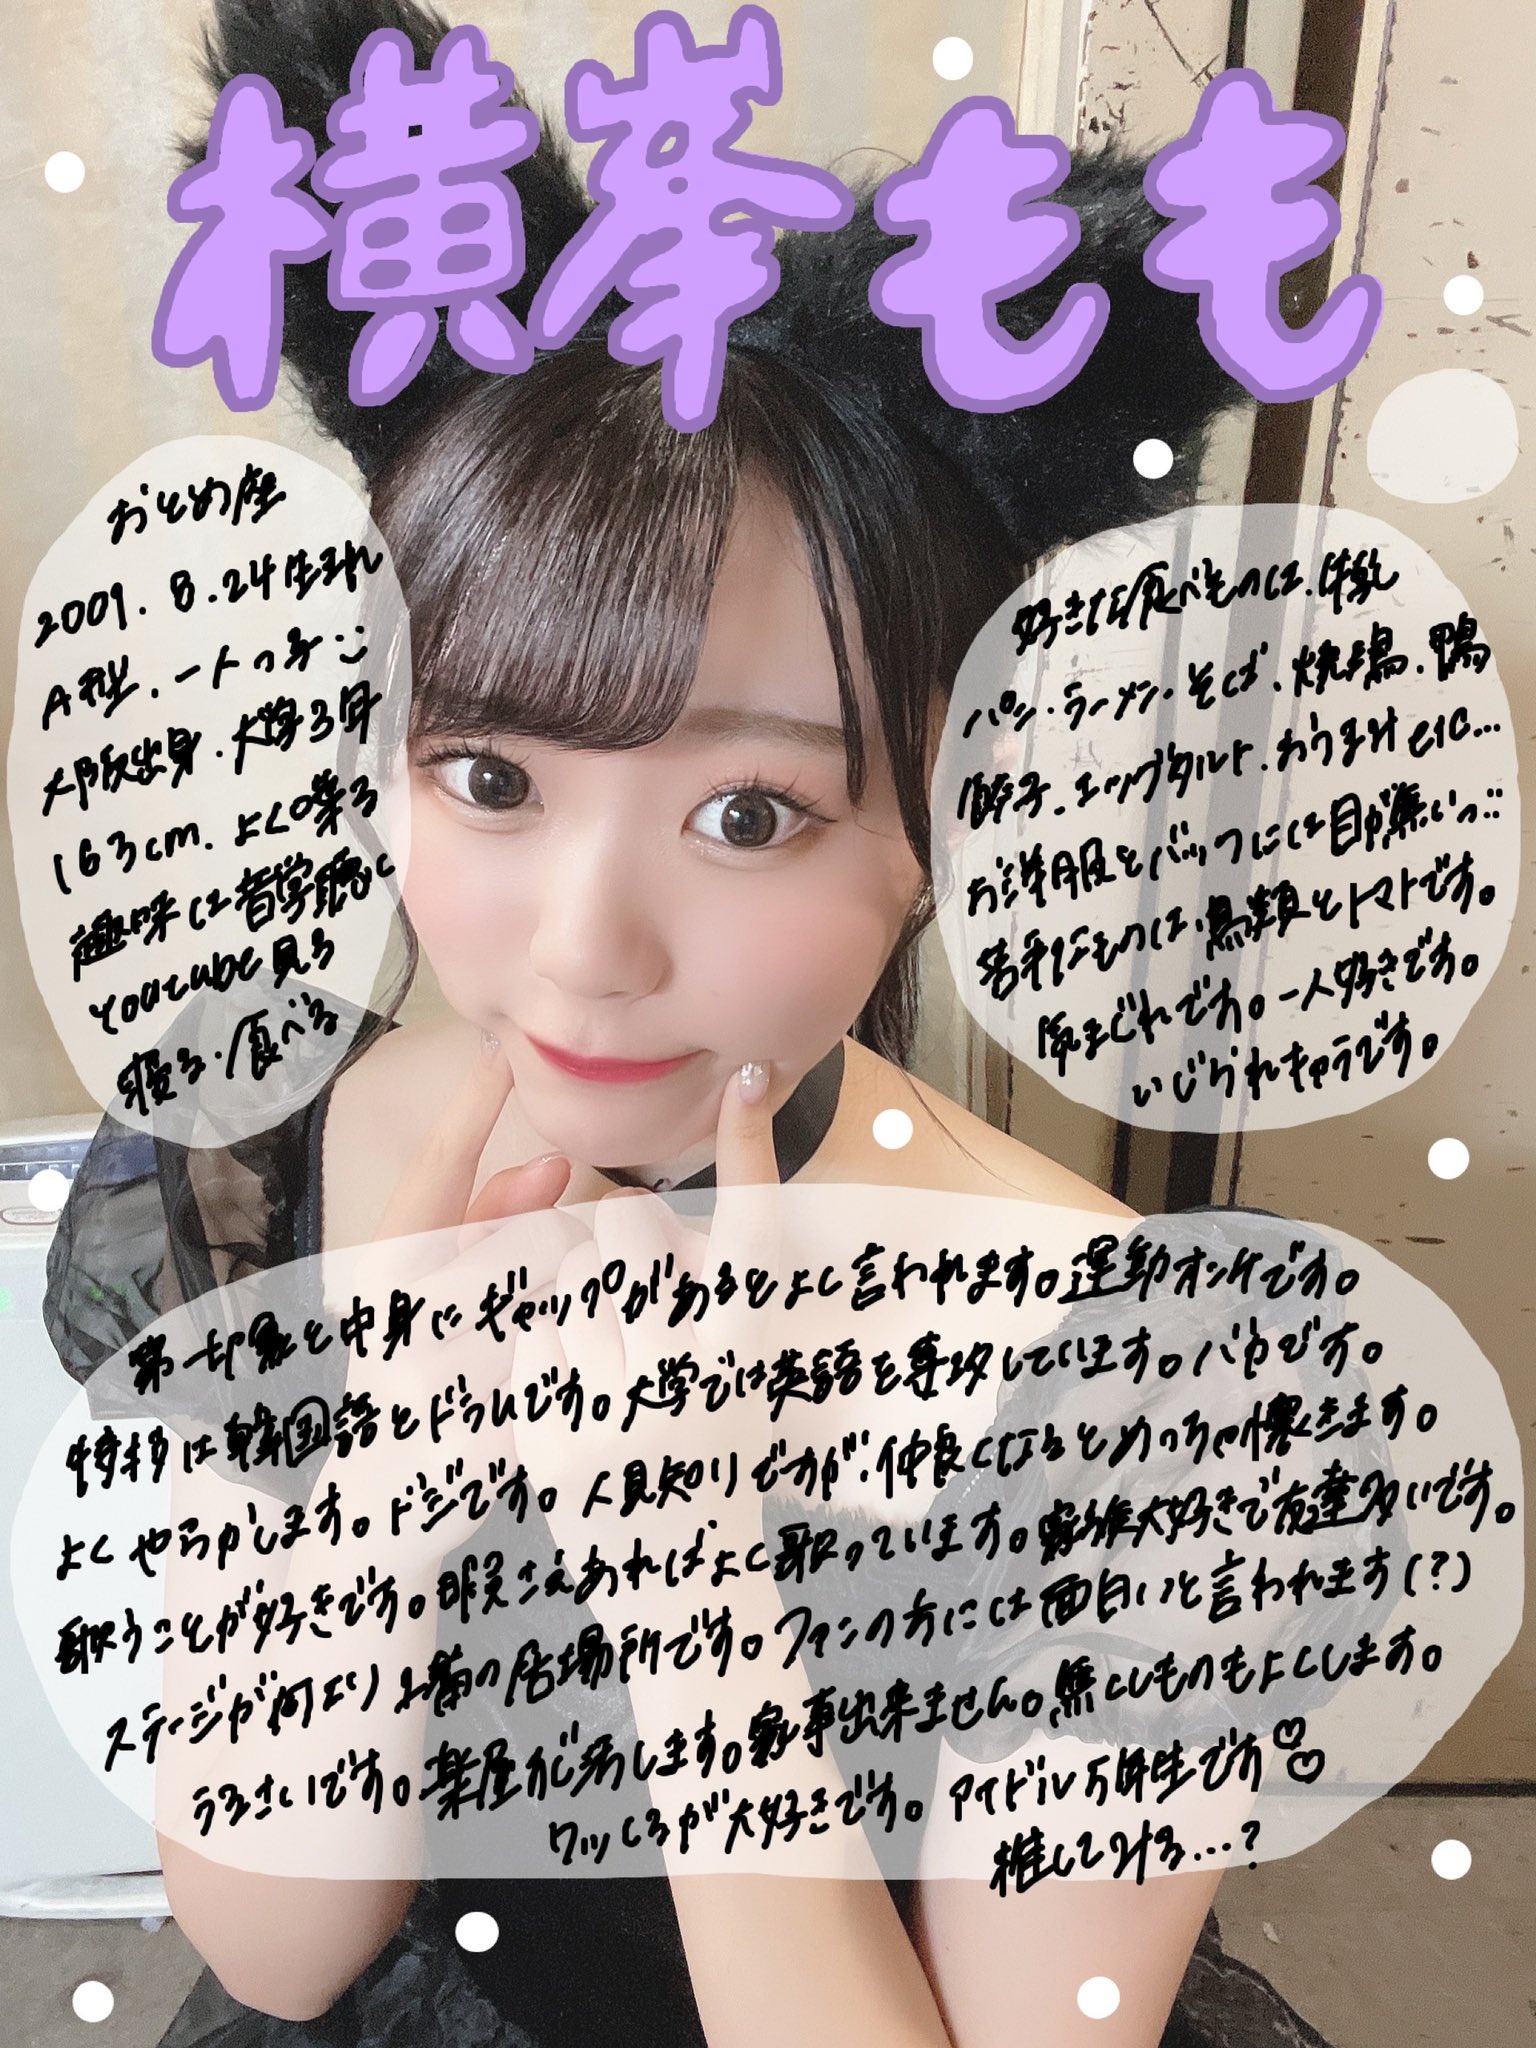 横峯もも
おとめ座
2001.8.24生まれ
A型.一人っ子
大阪出身.大学3年
163cm.よく喋る
趣味は音楽聴く
YouTube見る
寝る.食べる
好きな食べものは、
パン.ラーメン.そば.焼き鳥.鴨
餃子.エッグタルト.おうまみetc...
お洋服とバッグには目が無いっ
苦手なものは、鳥類とトマトです。
気まぐれです。一人好きです。
いじられキャラです。
第一印象と中身にギャップがあるとよく言われます。運動オンチです。
特技は韓国語とドラムです。大学では英語を専攻しています。バカです。
よくやらかします。ドジです。人見知りですが、仲良くなるとめっちゃ懐きます。
歌うことが好きです。暇さえあればよく歌っています。家族大好きで友達多いです。
ステージが何より1番の居場所です。ファンの方には面白いと言われます(?)
うるさいです。楽屋が汚します。家事出来ません。無くしものもよくします。
ワッしょが大好きです。アイドル万年生です♡
推してみる...?